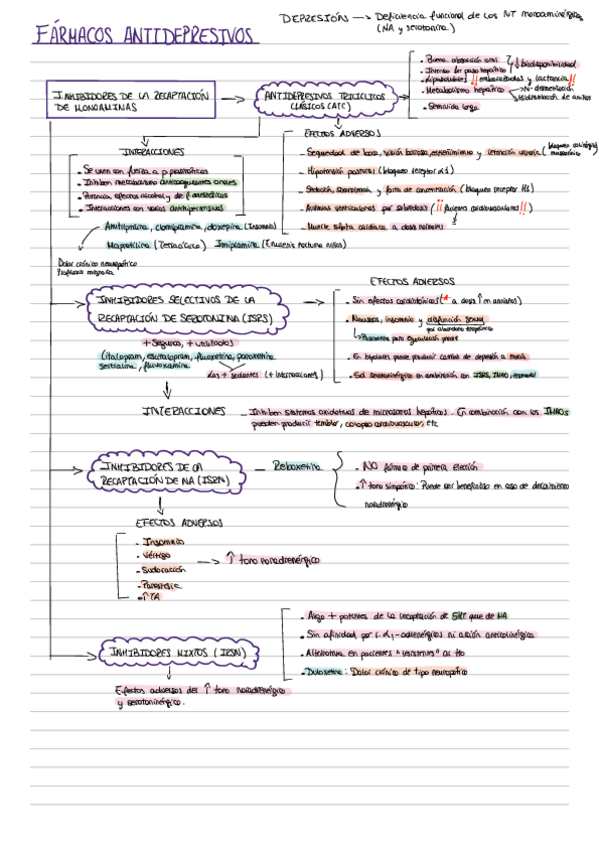 FÁRMACOS ANTIDEPRESIVOS
DEPRESIÓN → Deficiencia funcional de los NT monoaminérgicos
(NA y serotonina)
INHIBIDORES DE LA RECAPTACIÓN
DE MONOAMINAS
ANTIDEPRESIVOS TRICÍCLICOS
CLÁSICOS (ATC)
- Buena absorción oral
- Intenso 1er paso hepático
↓ biodisponibilidad
- Liposolubles !! embarazadas y lactancia !!
- Metabolismo hepático
N-desmetilación
- Semivida larga
INTERACCIONES
- Se unen con fuerza a p. plasmáticas
- Inhiben metabolismo anticoagulantes orales
- Potencia efectos alcohol y de
- Interacciones con varios antihipertensivos
EFECTOS ADVERSOS
- Sequedad de boca, visión borrosa, estreñimiento y retención urinaria (bloqueo colinérgico muscarínico)
- Hipotensión postural (bloqueo receptor α1)
- Sedación, somnolencia y falta de concentración (bloqueo receptor H1)
- Arritmias ventriculares por sobredosis (!! pacientes cardiovasculares !!)
- Muerte súbita cardíaca a dosis normales
Amitriptilina, clomipramina, doxepina (Insomnio)
Maprotilina (Tetracíclico) Imipramina (Enuresis nocturna niños)
Dolor crónico neuropático
Profilaxis migraña
INHIBIDORES SELECTIVOS DE LA
RECAPTACIÓN DE SEROTONINA (ISRS)
+ seguros, + utilizados
Citalopram, escitalopram, fluoxetina, paroxetina
sertralina, fluvoxamina
Los + sedantes (+ interacciones)
EFECTOS ADVERSOS
- Sin efectos cardiotóxicos (* a dosis ↑ m arritmias)
- Náuseas, insomnio y disfunción sexual
para eyaculación precoz
- En bipolares puede producir cambio de depresión a manía
- Sd. serotoninérgico en combinación con ISRS, IMAO,
INTERACCIONES
- Inhiben sistemas oxidativos de microsomas hepáticos. En combinación con los IMAOs
pueden producir temblor, colapso cardiovascular, etc
INHIBIDORES DE LA
RECAPTACIÓN DE NA (ISRN)
Reboxetina
- NO fármaco de primera elección
- ↑ tono simpático: Puede ser beneficioso en caso de decaimiento
noradrenérgico
EFECTOS ADVERSOS
- Insomnio
- Vértigo
- Sudoración
- Parestesia
- ↑TA
→ ↑ tono noradrenérgico
INHIBIDORES MIXTOS (IRSN)
- Algo + potentes de la recaptación de 5HT que de NA
- Sin afinidad por r. α1-adrenérgicos ni acción anticolinérgica
- Alternativa en pacientes "resistentes" al tto
- Duloxetina: Dolor crónico de tipo neuropático
Efectos adversos del ↑ tono noradrenérgico
y serotoninérgico.